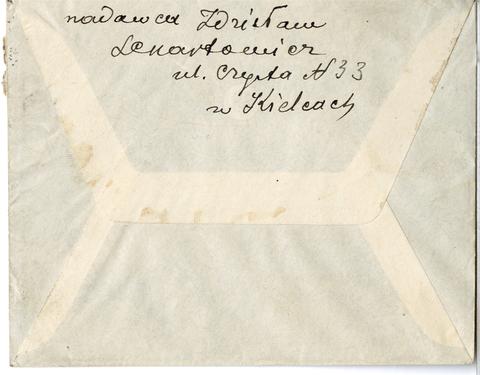 nadawca Zdzisław
Lenartowicz
ul. Czysta N 33
w Kielcach